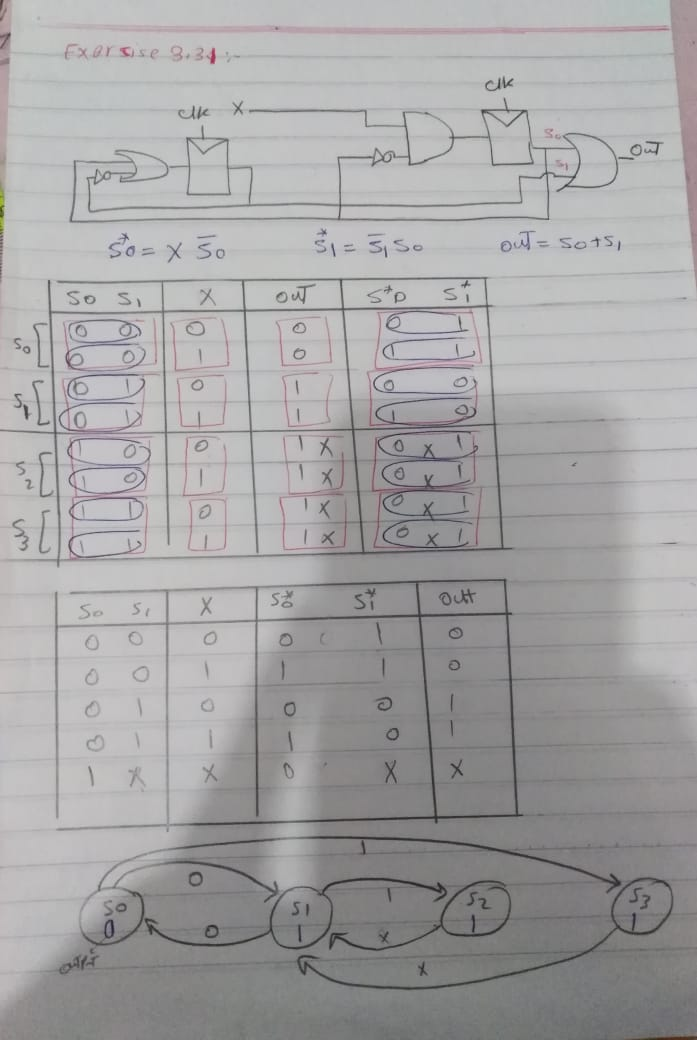 Exarsise 3.31:-
clk
clk X
S0
S1 OUT
S*0 = X S̅0 S*1 = S̅1 S0 OUT = S0 + S1
S0 S1 X OUT S*0 S*1
S0 [ 0 0 0 0 0 1
0 0 1 0 1 1
S1 [ 0 1 0 1 0 0
0 1 1 1 1 0
S2 [ 1 0 0 1 X 0 X 1
1 0 1 1 X 0 X 1
S3 [ 1 1 0 1 X 0 X 1
1 1 1 1 X 0 X 1
S0 S1 X S*0 S*1 OUT
0 0 0 0 1 0
0 0 1 1 1 0
0 1 0 0 0 1
0 1 1 1 0 1
1 X X 0 X X
1
0 1
S0 S1 S2 S3
0 1 1 1
0 X
X